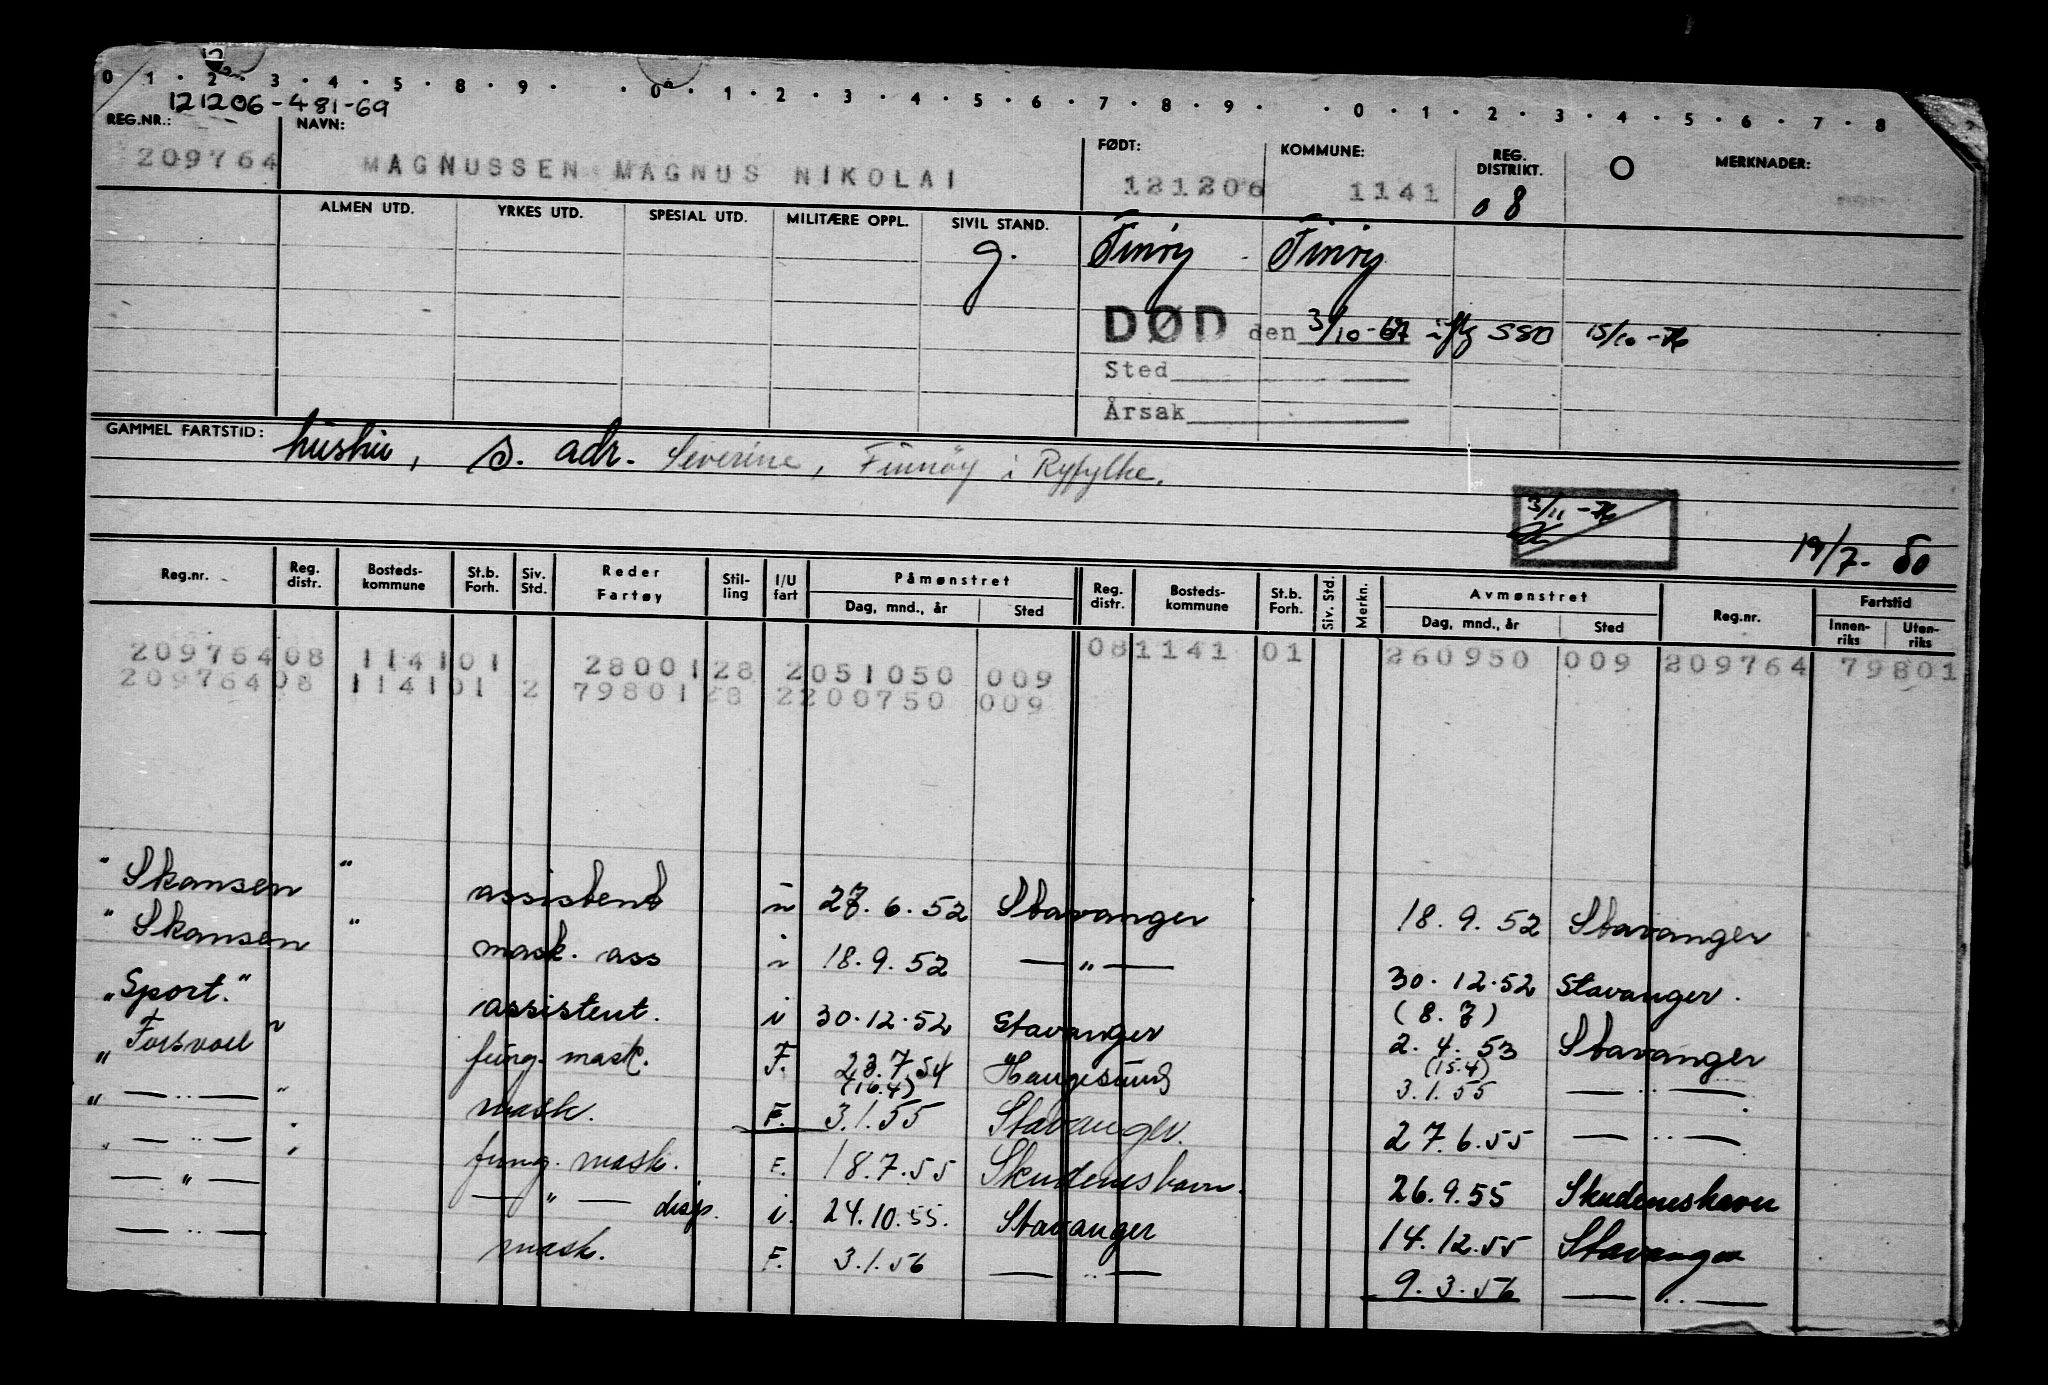 0 1 · 2 · 3 · 4 · 5 · 8 · 9 · · 0 · 1 · 2 · 3 · 4 · 5 · 6 · 7 · 8 · 9 · · 0 · 1 · 2 · 3 · 4 · 5 · 6 · 7 · 8
121206-481-69
REG.NR.: NAVN: FØDT: KOMMUNE: REG. DISTRIKT. O MERKNADER:
209764 MAGNUSSEN MAGNUS NIKOLAI 121206 1141 08
ALMEN UTD. YRKES UTD. SPESIAL UTD. MILITÆRE OPPL. SIVIL STAND.
g. Finnøy Finnøy
DØD den 3/10-67 iflg SSB 15/10-76
Sted
Årsak
GAMMEL FARTSTID: hustru, s. adr. Severine, Finnøy i Ryfylke.
3/11-76
19/7-50
Reg.nr. Reg. distr. Bosteds-kommune St.b. Forh. Siv. Std. Reder Fartøy Stil-ling I/U fart Påmønstret Reg. distr. Bosteds-kommune St.b. Forh. Siv. Std. Merkn. Avmønstret Reg.nr. Fartstid
Dag, mnd., år Sted Dag, mnd., år Sted Innen-riks Uten-riks
209764 08 1141 01 28001 28 2 051050 009 08 1141 01 260950 009 209764 79801
209764 08 1141 01 2 79801 28 2 200750 009
" Skansen " assistent i 27.6.52 Stavanger 18.9.52 Stavanger
" Skansen " mask. ass i 18.9.52 — " — 30.12.52 Stavanger.
"Sport." assistent. i 30.12.52 Stavanger (8.7) 2.4.53 Stavanger
" Forsvoll " fung. mask. F. 23.7.54 (16.4) Haugesund (15.4) 3.1.55 — .. —
" — .. — " mask. F. 3.1.55 Stavanger. 27.6.55 — .. —
" — .. — " fung. mask. F. 18.7.55 Skudeneshavn. 26.9.55 Skudeneshavn
— " — — " — disp. i. 24.10.55. Stavanger 14.12.55 Stavanger
— .. — mask. F. 3.1.56 — .. — 9.3.56 — .. —